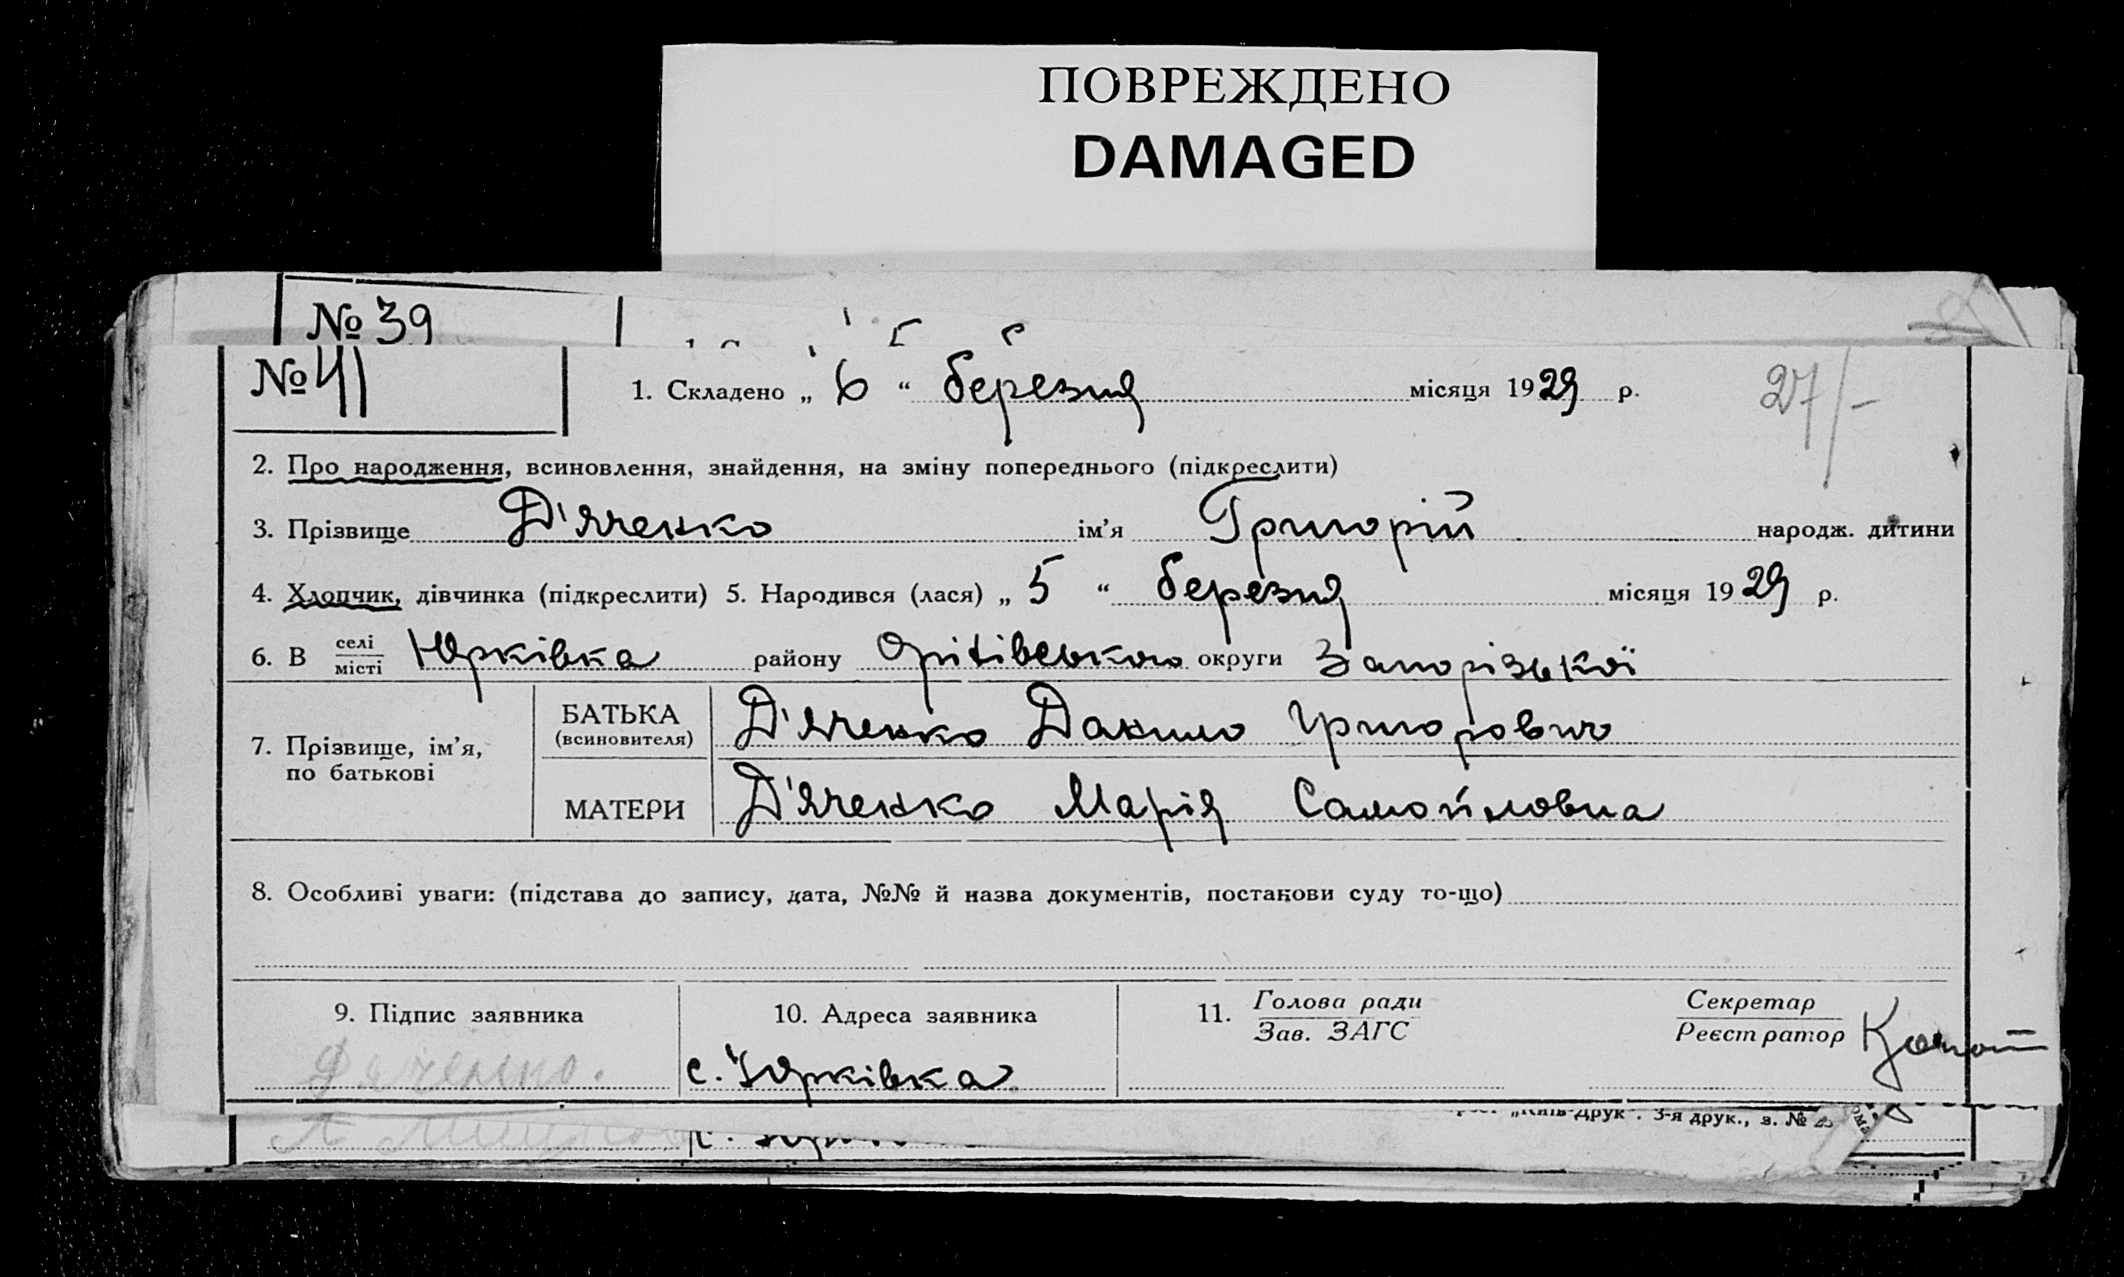 ПОВРЕЖДЕНО
DAMAGED
№ 39
№ 41
1. Складено „ 6 “ березня місяця 1929 р. 27/-
2. Про народження, всиновлення, знайдення, на зміну попереднього (підкреслити)
3. Прізвище Д'яченко ім'я Григорій народж. дитини
4. Хлопчик, дівчинка (підкреслити) 5. Народився (лася) „ 5 “ березня місяця 1929 р.
6. В селі/місті Юрківка району Оріхівського округи Запорізької
7. Прізвище, ім'я, по батькові
БАТЬКА (всиновителя) Д'яченко Данило Григорович
МАТЕРИ Д'яченко Марія Самойловна
8. Особливі уваги: (підстава до запису, дата, №№ й назва документів, постанови суду то-що)
9. Підпис заявника 10. Адреса заявника 11. Голова ради / Зав. ЗАГС Секретар / Реєстратор
Дяченко. с. Юрківка
„Київ-Друк". 3-я друк., з. №